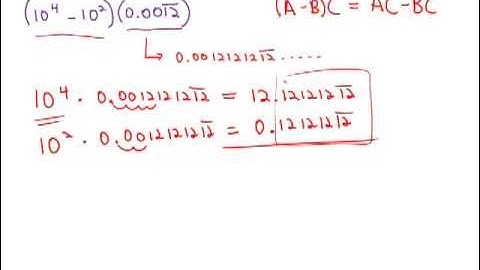 (10⁴ - 10²)(0.00\overline{12}) (A-B)C = AC-BC
0.00121212\overline{12} .....
10⁴ · 0.00121212\overline{12} = 12.121212\overline{12}
10² · 0.00121212\overline{12} = 0.121212\overline{12}